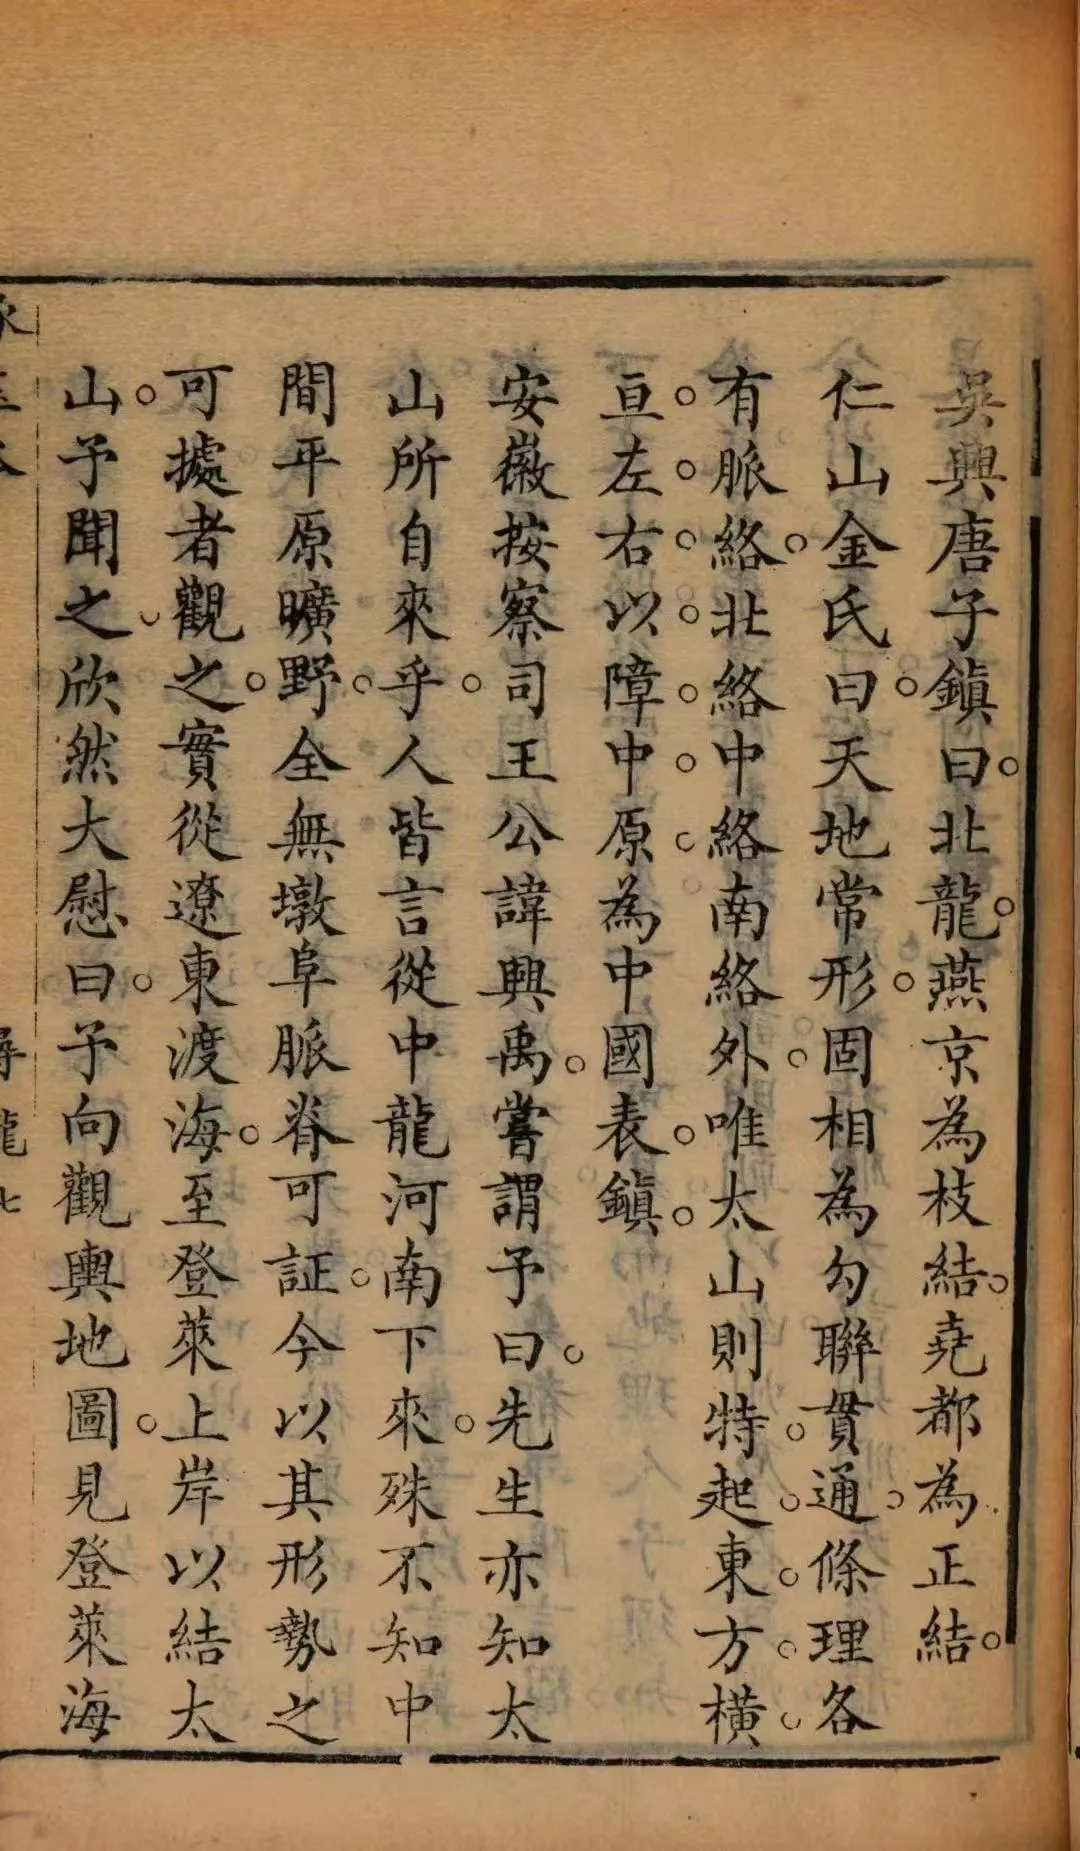 吳興唐子鎮曰北龍燕京為枝結堯都為正結
仁山金氏曰天地常形固相為勾聯貫通條理各
有脈絡北絡中絡南絡外唯太山則特起東方橫
亘左右以障中原為中國表鎮
安徽按察司王公諱興禹嘗謂予曰先生亦知太
山所自來乎人皆言從中龍河南下來殊不知中
間平原曠野全無墩阜脈脊可証今以其形勢之
可據者觀之實從遼東渡海至登萊上岸以結太
山予聞之欣然大慰曰予向觀輿地圖見登萊海
尋龍 七